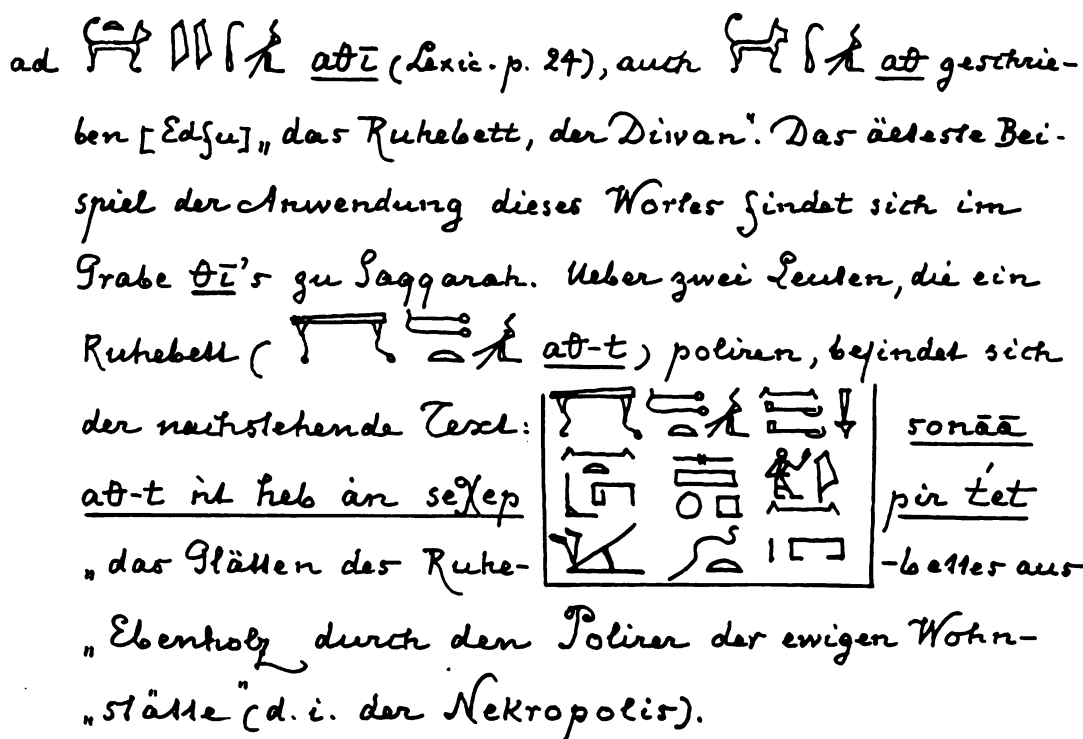 ad aθī (Lexic. p. 24), auch aθ geschrie-
ben [Edfu] „das Ruhebett, der Divan". Das älteste Bei-
spiel der Anwendung dieses Wortes findet sich im
Grabe θī's zu Saqqarah. Ueber zwei Leuten, die ein
Ruhebett ( aθ-t ) poliren, befindet sich
der nachstehende Text: sonāā
aθ-t nt heb àn seχep pir t'et
„das Glätten des Ruhe- -bettes aus
„Ebenholz durch den Polirer der ewigen Wohn-
„stätte" (d. i. der Nekropolis).